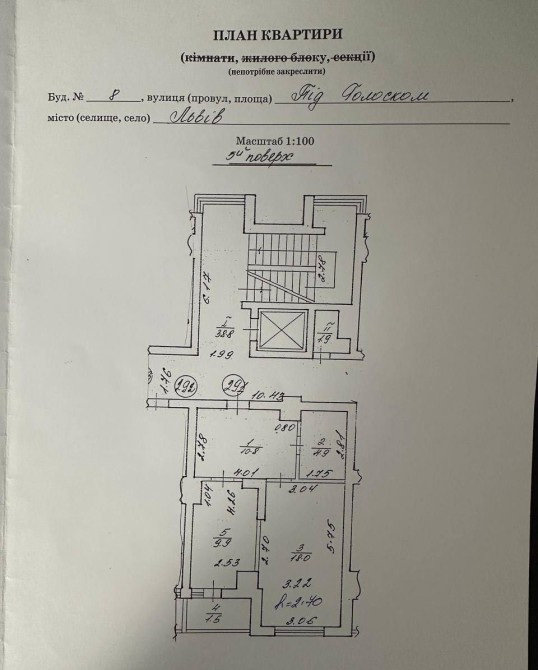 ПЛАН КВАРТИРИ
(кімнати, жилого блоку, секції)
(непотрібне закреслити)
Буд. № 8, вулиця (провул, площа) Під Голоском,
місто (селище, село) Львів
Масштаб 1:100
поверх
2.78
6.17
I
38.8
II
1.9
1.99
1.76
292
291
10.43
0.80
2.78
1
10.8
2
4.9
2.81
4.01
1.75
3.04
1.04
4.26
5
9.9
2.53
2.70
3
18.0
5.75
3.22
h=2.70
4
1.6
3.06